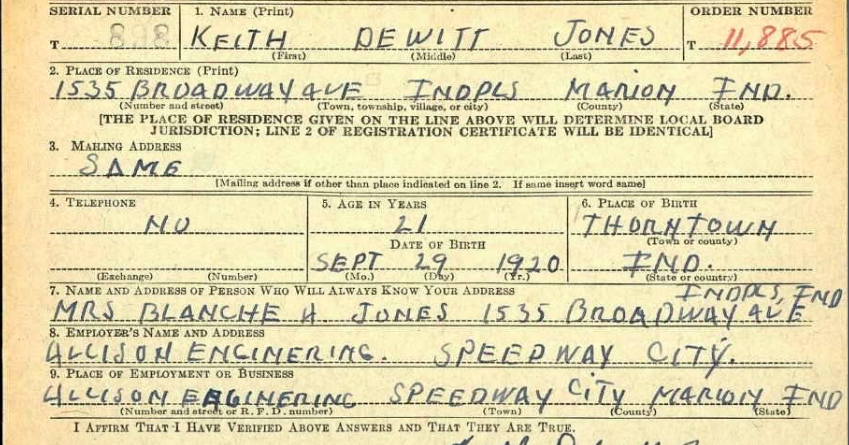 SERIAL NUMBER 1. NAME (Print) ORDER NUMBER
T 898 KEITH DEWITT JONES T 11,885
(First) (Middle) (Last)
2. PLACE OF RESIDENCE (Print)
1535 BROADWAY AVE INDPLS MARION IND.
(Number and street) (Town, township, village, or city) (County) (State)
[THE PLACE OF RESIDENCE GIVEN ON THE LINE ABOVE WILL DETERMINE LOCAL BOARD
JURISDICTION; LINE 2 OF REGISTRATION CERTIFICATE WILL BE IDENTICAL]
3. MAILING ADDRESS
SAME
[Mailing address if other than place indicated on line 2. If same insert word same]
4. TELEPHONE 5. AGE IN YEARS 6. PLACE OF BIRTH
NO 21 THORNTOWN
(Town or county)
DATE OF BIRTH
SEPT 29 1920 IND.
(Exchange) (Number) (Mo.) (Day) (Yr.) (State or country)
7. NAME AND ADDRESS OF PERSON WHO WILL ALWAYS KNOW YOUR ADDRESS INDPLS, IND
MRS BLANCHE A JONES 1535 BROADWAY AVE
8. EMPLOYER'S NAME AND ADDRESS
ALLISON ENGINERING. SPEEDWAY CITY.
9. PLACE OF EMPLOYMENT OR BUSINESS
ALLISON ENGINERING SPEEDWAY CITY MARION IND
(Number and street or R. F. D. number) (Town) (County) (State)
I AFFIRM THAT I HAVE VERIFIED ABOVE ANSWERS AND THAT THEY ARE TRUE.